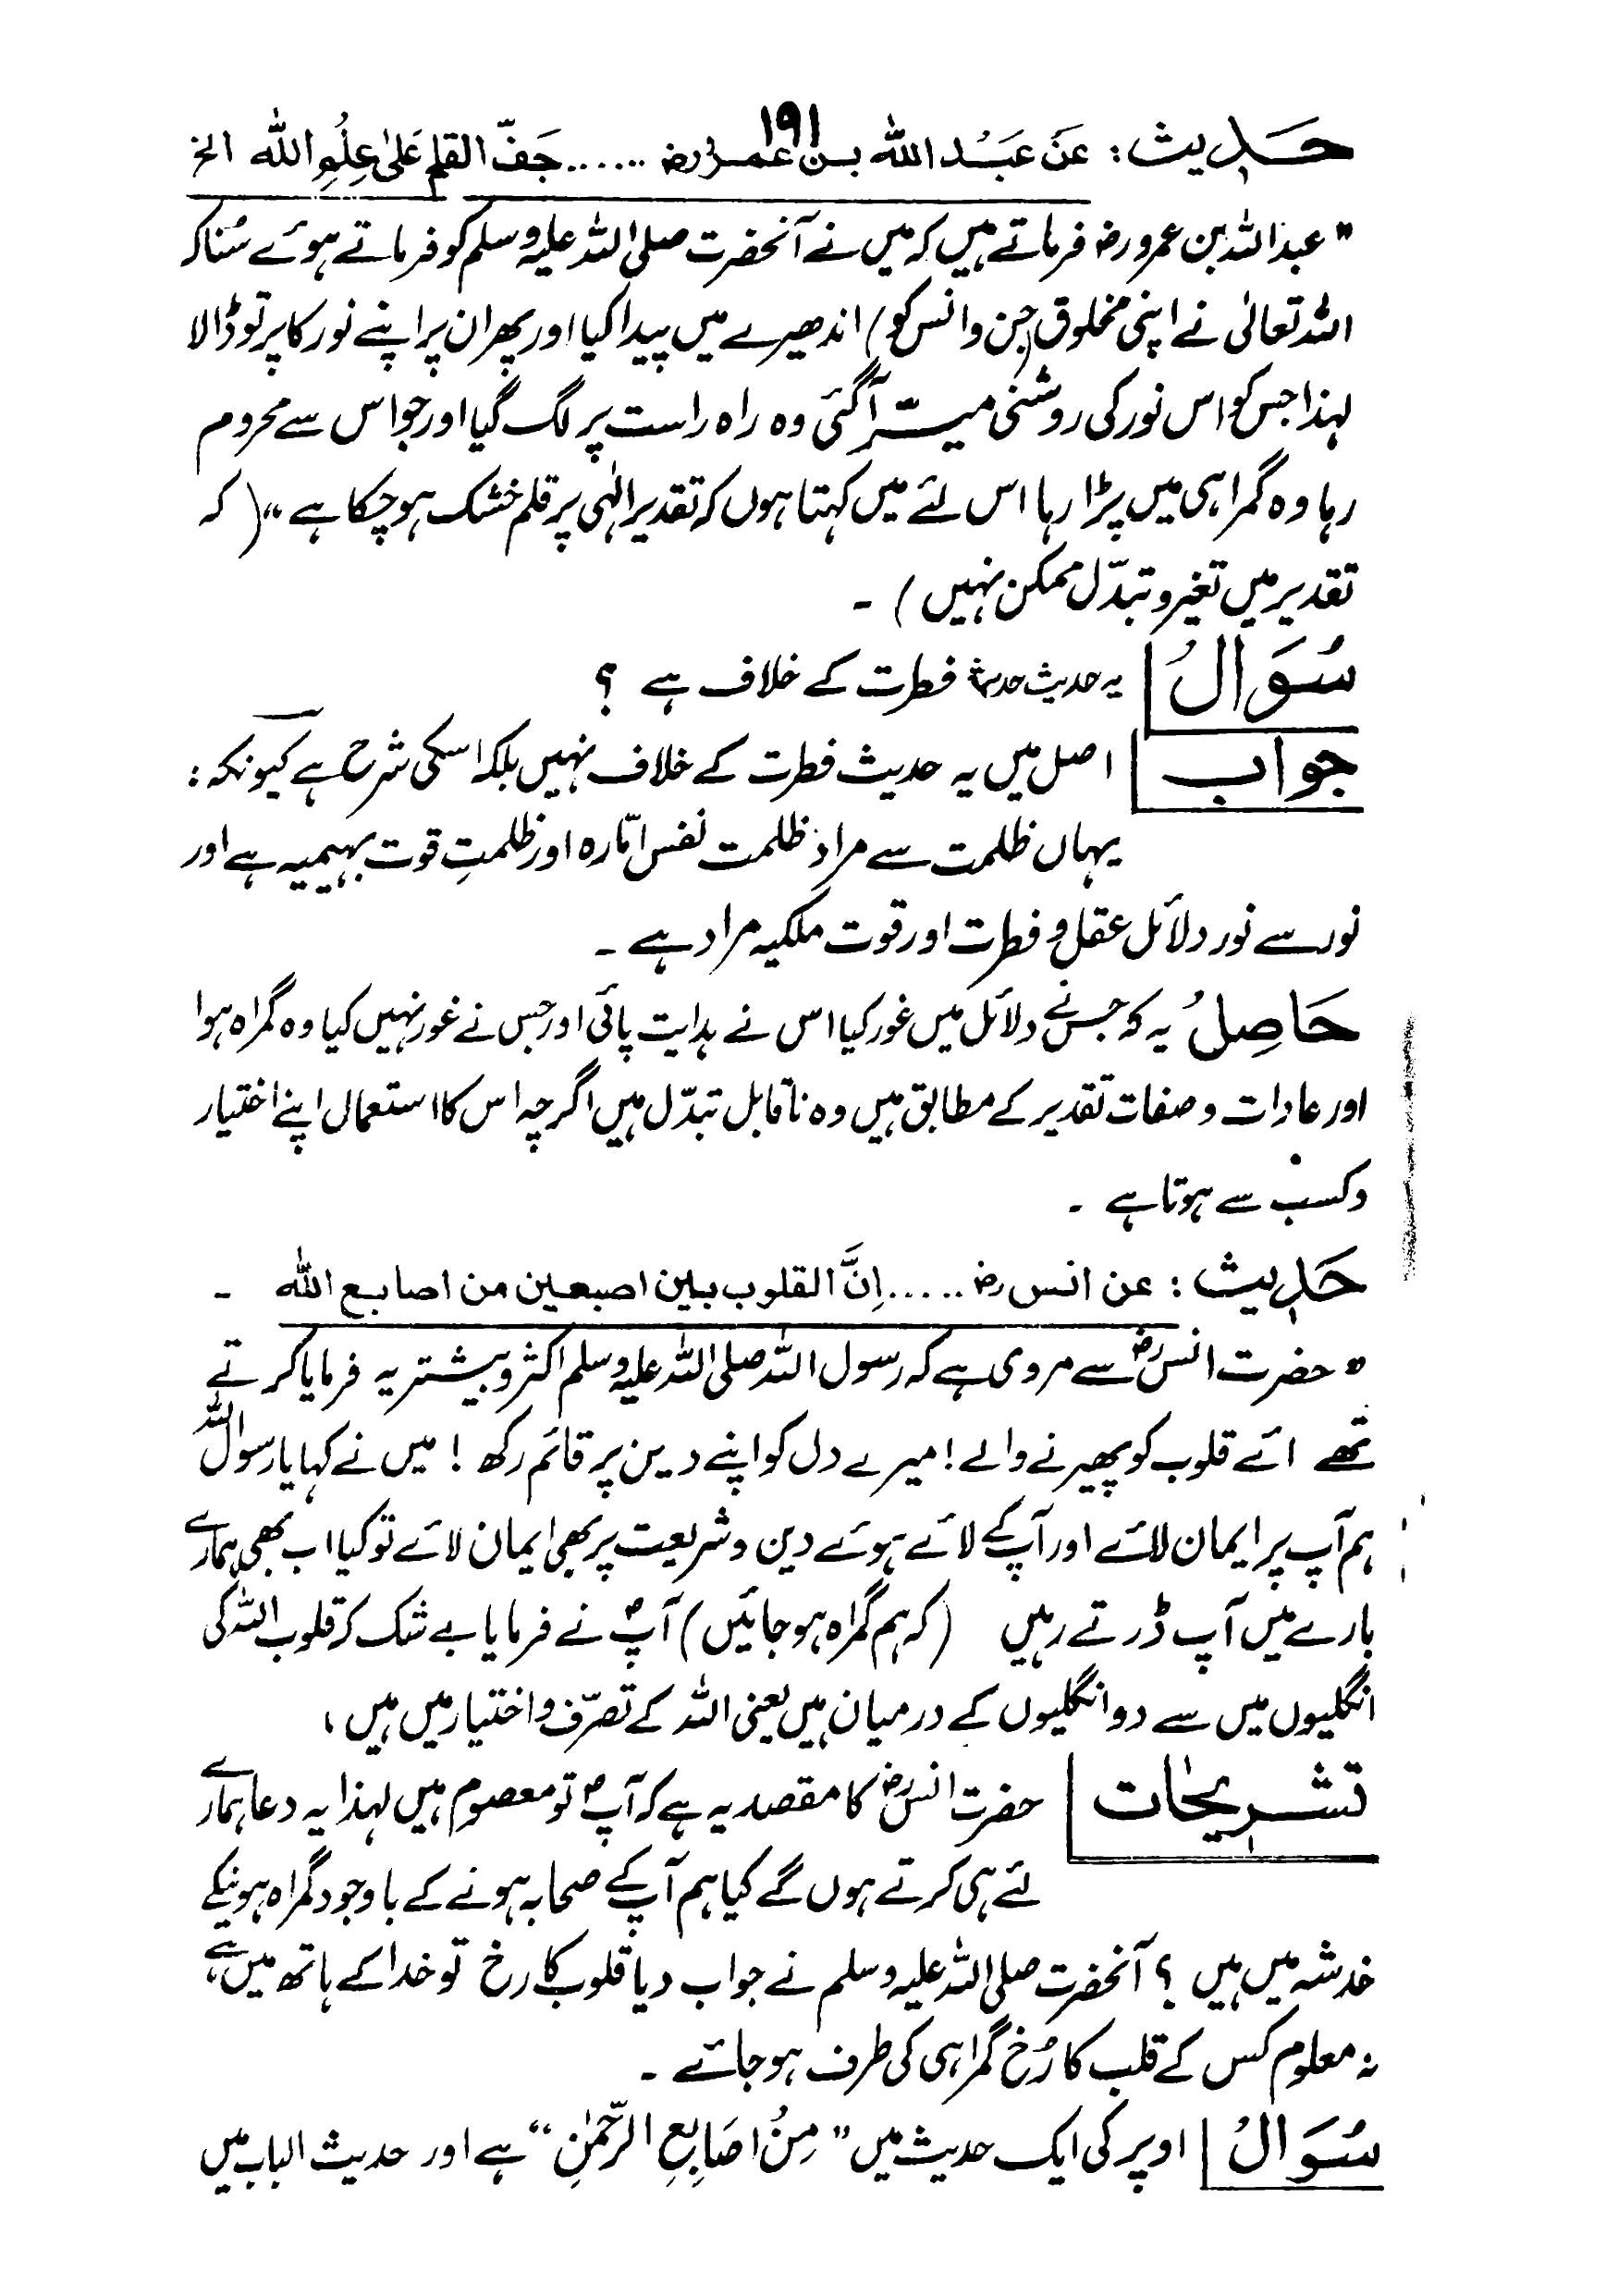 ۱۹۱
حَدِیث : عَن عَبْد الله بن عمرو رض ...... جَفَّ القلم عَلیٰ عِلْمِ الله الخ
" عبداللہ بن عمرو رض فرماتے ہیں کہ میں نے آنحضرت صلی اللہ علیہ وسلم کو فرماتے ہوئے سُنا کہ
اللہ تعالیٰ نے اپنی مخلوق (جن وانس کو) اندھیرے میں پیدا کیا اور پھر ان پر اپنے نور کا پرتو ڈالا
لہذا جس کو اس نور کی روشنی میسّر آگئی وہ راہ راست پر لگ گیا اور جو اس سے محروم
رہا وہ گمراہی میں پڑا رہا اس لئے میں کہتا ہوں کہ تقدیر الٰہی پر قلم خشک ہو چکا ہے " ( کہ
تقدیر میں تغیر و تبدّل ممکن نہیں ) ۔
سُوَالُ یہ حدیث فطرت کے خلاف ہے ؟
جواب اصل میں یہ حدیث فطرت کے خلاف نہیں بلکہ اسکی شرح ہے کیونکہ :
یہاں ظلمت سے مراد ظلمت نفس امّارہ اور ظلمتِ قوت بہیمیہ ہے اور
نور سے نور دلائل عقل و فطرت اور قوت ملکیہ مراد ہے ۔
حَاصِلُ یہ کہ جس نے دلائل میں غور کیا اس نے ہدایت پائی اور جس نے غور نہیں کیا وہ گمراہ ہوا
اور عادات و صفات تقدیر کے مطابق ہیں وہ ناقابل تبدّل ہیں اگرچہ اس کا استعمال اپنے اختیار
و کسب سے ہوتا ہے ۔
حَدِیث : عن انس رض ..... اِنَّ القلوب بین اصبعین من اصابع الله ۔
" حضرت انس رض سے مروی ہے کہ رسول اللہ صلی اللہ علیہ وسلم اکثر و بیشتر یہ فرمایا کرتے
تھے ائے قلوب کو پھیرنے والے ! میرے دل کو اپنے دین پر قائم رکھ ! میں نے کہا یا رسول اللہ
ہم آپ پر ایمان لائے اور آپ کے لائے ہوئے دین و شریعت پر بھی ایمان لائے تو کیا اب بھی ہمارے
بارے میں آپ ڈرتے رہیں ( کہ ہم گمراہ ہو جائیں ) آپؐ نے فرمایا بے شک کہ قلوب اللہ کی
انگلیوں میں سے دو انگلیوں کے درمیان ہیں یعنی اللہ کے تصرّف و اختیار میں ہیں ،
تشریحات حضرت انس رض کا مقصد یہ ہے کہ آپؐ تو معصوم ہیں لہذا یہ دعا ہمارے
لئے ہی کرتے ہوں گے کیا ہم آپ کے صحابہ ہونے کے باوجود گمراہ ہونیکے
خدشہ میں ہیں ؟ آنحضرت صلی اللہ علیہ وسلم نے جواب دیا قلوب کا رخ تو خدا کے ہاتھ میں ہے
نہ معلوم کس کے قلب کا رُخ گمراہی کی طرف ہو جائے ۔
سُوَالُ اوپر کی ایک حدیث میں " مِنْ اصَابِعِ الرَّحْمٰنِ " ہے اور حدیث الباب میں